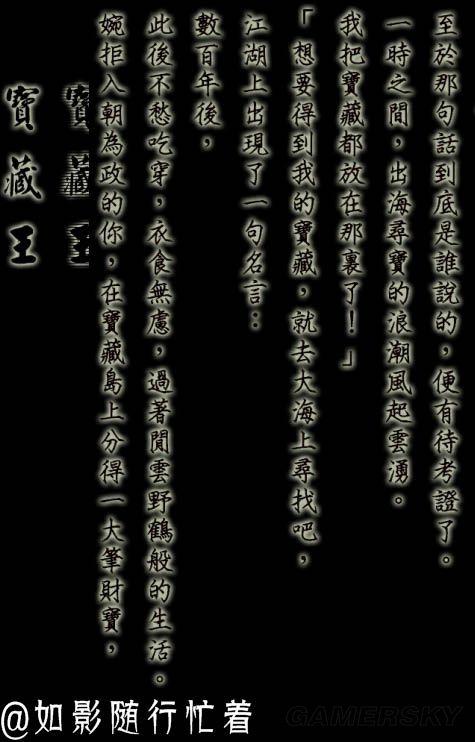 寶藏王
寶藏王
婉拒入朝為政的你，在寶藏島上分得一大筆財寶，
此後不愁吃穿，衣食無慮，過著閒雲野鶴般的生活。
數百年後，
江湖上出現了一句名言：
「想要得到我的寶藏，就去大海上尋找吧，
我把寶藏都放在那裏了！」
一時之間，出海尋寶的浪潮風起雲湧。
至於那句話到底是誰說的，便有待考證了。
@如影随行忙着
GAMERSKY